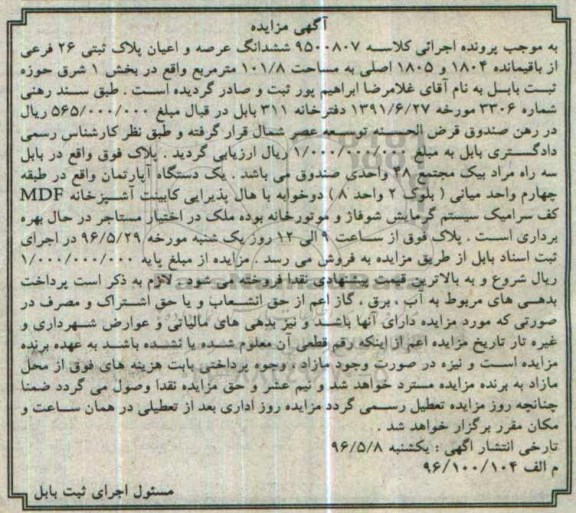 آگهی مزایده
به موجب پرونده اجرائی کلاسه ۹۵۰۰۸۰۷ ششدانگ عرصه و اعیان پلاک ثبتی ۲۶ فرعی
از باقیمانده ۱۸۰۴ و ۱۸۰۵ اصلی به مساحت ۱۰۱/۸ مترمربع واقع در بخش ۱ شرق حوزه
ثبت بابل به نام آقای غلامرضا ابراهیم پور ثبت و صادر گردیده است . طبق سند رهنی
شماره ۳۳۰۶ مورخه ۱۳۹۱/۶/۲۷ دفترخانه ۳۱۱ بابل در قبال مبلغ ۵۶۵/۰۰۰/۰۰۰ ریال
در رهن صندوق قرض الحسنه توسعه عصر شمال قرار گرفته و طبق نظر کارشناس رسمی
دادگستری بابل به مبلغ ۱/۰۰۰/۰۰۰/۰۰۰ ریال ارزیابی گردید . پلاک فوق واقع در بابل
سه راه مراد بیک مجتمع ۴۸ واحدی صندوق می باشد . یک دستگاه آپارتمان واقع در طبقه
چهارم واحد میانی ( بلوک ۲ واحد ۸ ) دوخوابه با هال پذیرایی کابینت آشپزخانه MDF
کف سرامیک سیستم گرمایش شوفاژ و موتورخانه بوده ملک در اختیار مستاجر در حال بهره
برداری است . پلاک فوق از ساعت ۹ الی ۱۲ روز یک شنبه مورخه ۹۶/۵/۲۹ در اجرای
ثبت اسناد بابل از طریق مزایده به فروش می رسد . مزایده از مبلغ پایه ۱/۰۰۰/۰۰۰/۰۰۰
ریال شروع و به بالاترین قیمت پیشنهادی نقدا فروخته می شود . لازم به ذکر است پرداخت
بدهی های مربوط به آب ، برق ، گاز اعم از حق انشعاب و یا حق اشتراک و مصرف در
صورتی که مورد مزایده دارای آنها باشد و نیز بدهی های مالیاتی و عوارض شهرداری و
غیره تار تاریخ مزایده اعم از اینکه رقم قطعی آن معلوم شده یا نشده باشد به عهده برنده
مزایده است و نیزه در صورت وجود مازاد ، وجوه پرداختی بابت هزینه های فوق از محل
مازاد به برنده مزایده مسترد خواهد شد و نیم عشر و حق مزایده نقدا وصول می گردد ضمنا
چنانچه روز مزایده تعطیل رسمی گردد مزایده روز اداری بعد از تعطیلی در همان ساعت و
مکان مقرر برگزار خواهد شد .
تارخی انتشار اگهی : یکشنبه ۹۶/۵/۸
م الف ۹۶/۱۰۰/۱۰۴
مسئول اجرای ثبت بابل